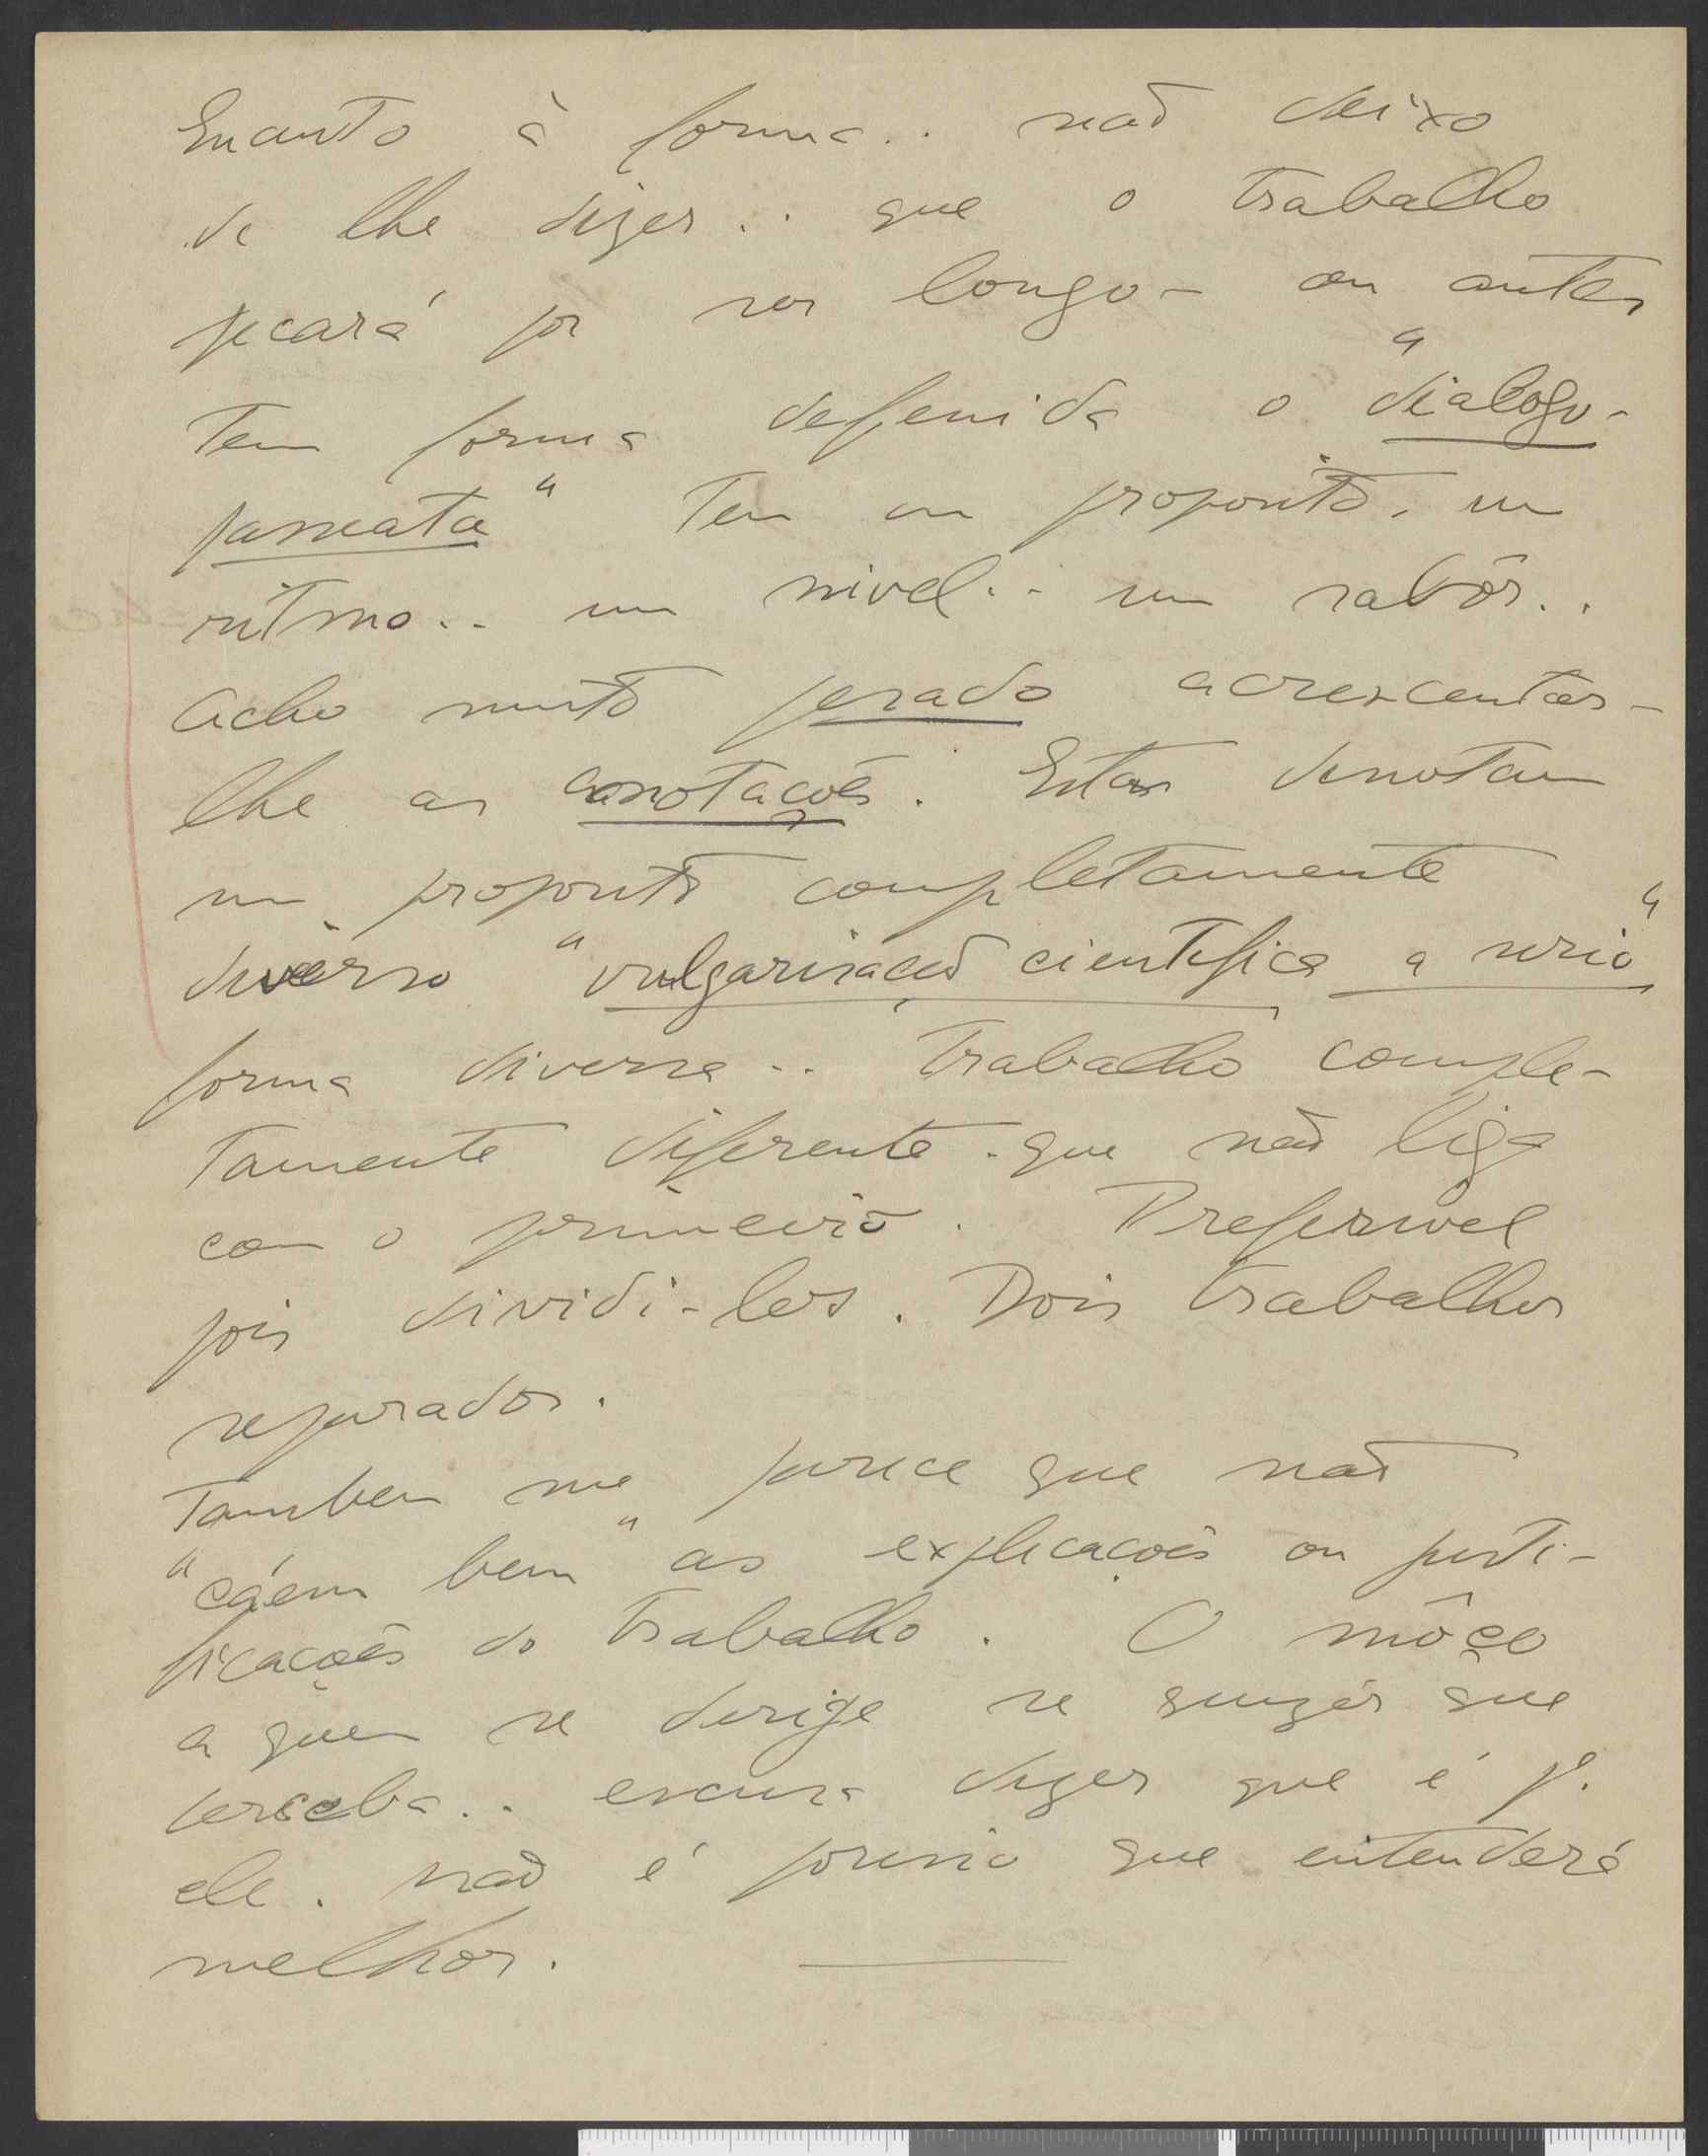 Quanto à forma.. não deixo
de lhe dizer.. que o trabalho
pecará por ser longo - ou antes
Tem forma defenida o "dialogo-
passeata" Tem um proposito, um
ritmo.. um nivel.. um sabôr..
Acho muito pesado acrescentar-
lhe as anotações. Estas denotam
um proposito completamente
diverso "vulgarisação cientifica a serio"
forma diversa.. Trabalho comple-
tamente diferente. que não liga
com o primeiro. Preferivel
pois dividi-los. Dois trabalhos
separados.
Tambem me parece que não
"cáem bem" as explicações ou justi-
ficações do trabalho. O môço
a quem se dirige se quizer que
perceba.. escusa dizer que é p.
ele. Não é por isso que entenderá
melhor.